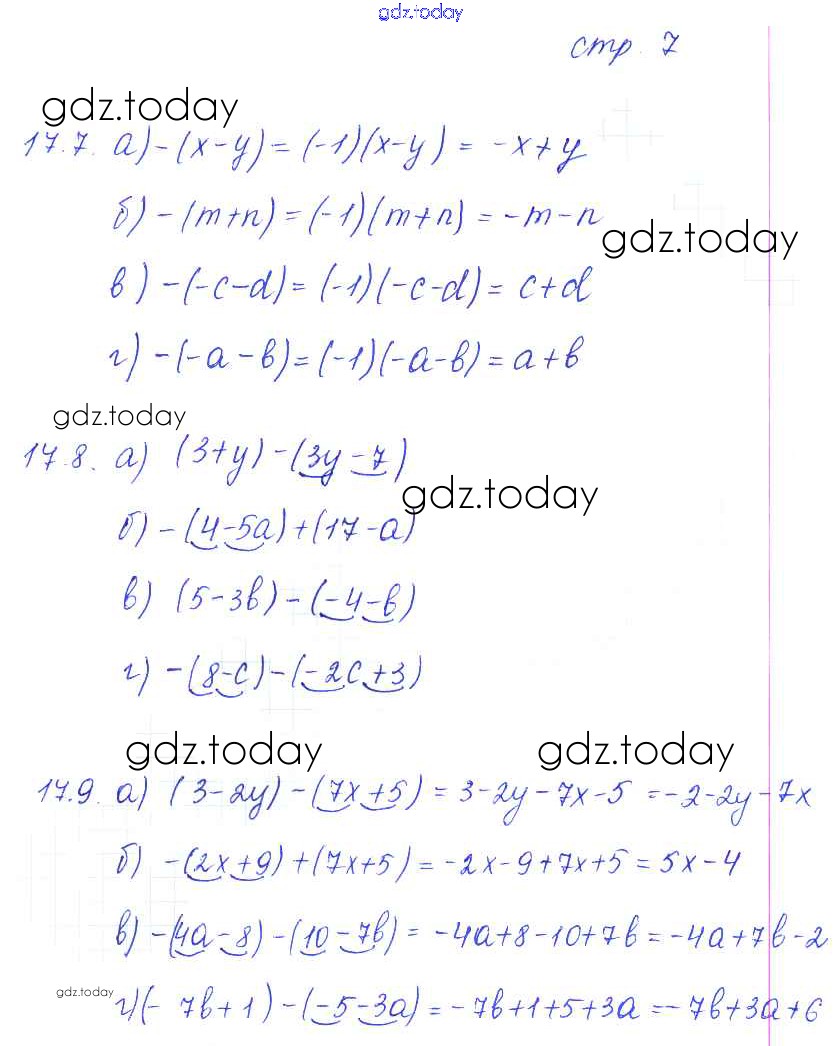 gdz.today
стр. 7
gdz.today
17.7. а) -(x-y) = (-1)(x-y) = -x+y
б) -(m+n) = (-1)(m+n) = -m-n
gdz.today
в) -(-c-d) = (-1)(-c-d) = c+d
г) -(-a-b) = (-1)(-a-b) = a+b
gdz.today
17.8. а) (3+y)-(3y-7)
gdz.today
б) -(4-5a)+(17-a)
в) (5-3b)-(-4-b)
г) -(8-c)-(-2c+3)
gdz.today gdz.today
17.9. а) (3-2y)-(7x+5) = 3-2y-7x-5 = -2-2y-7x
б) -(2x+9)+(7x+5) = -2x-9+7x+5 = 5x-4
в) -(4a-8)-(10-7b) = -4a+8-10+7b = -4a+7b-2
gdz.today
г) (-7b+1)-(-5-3a) = -7b+1+5+3a = -7b+3a+6